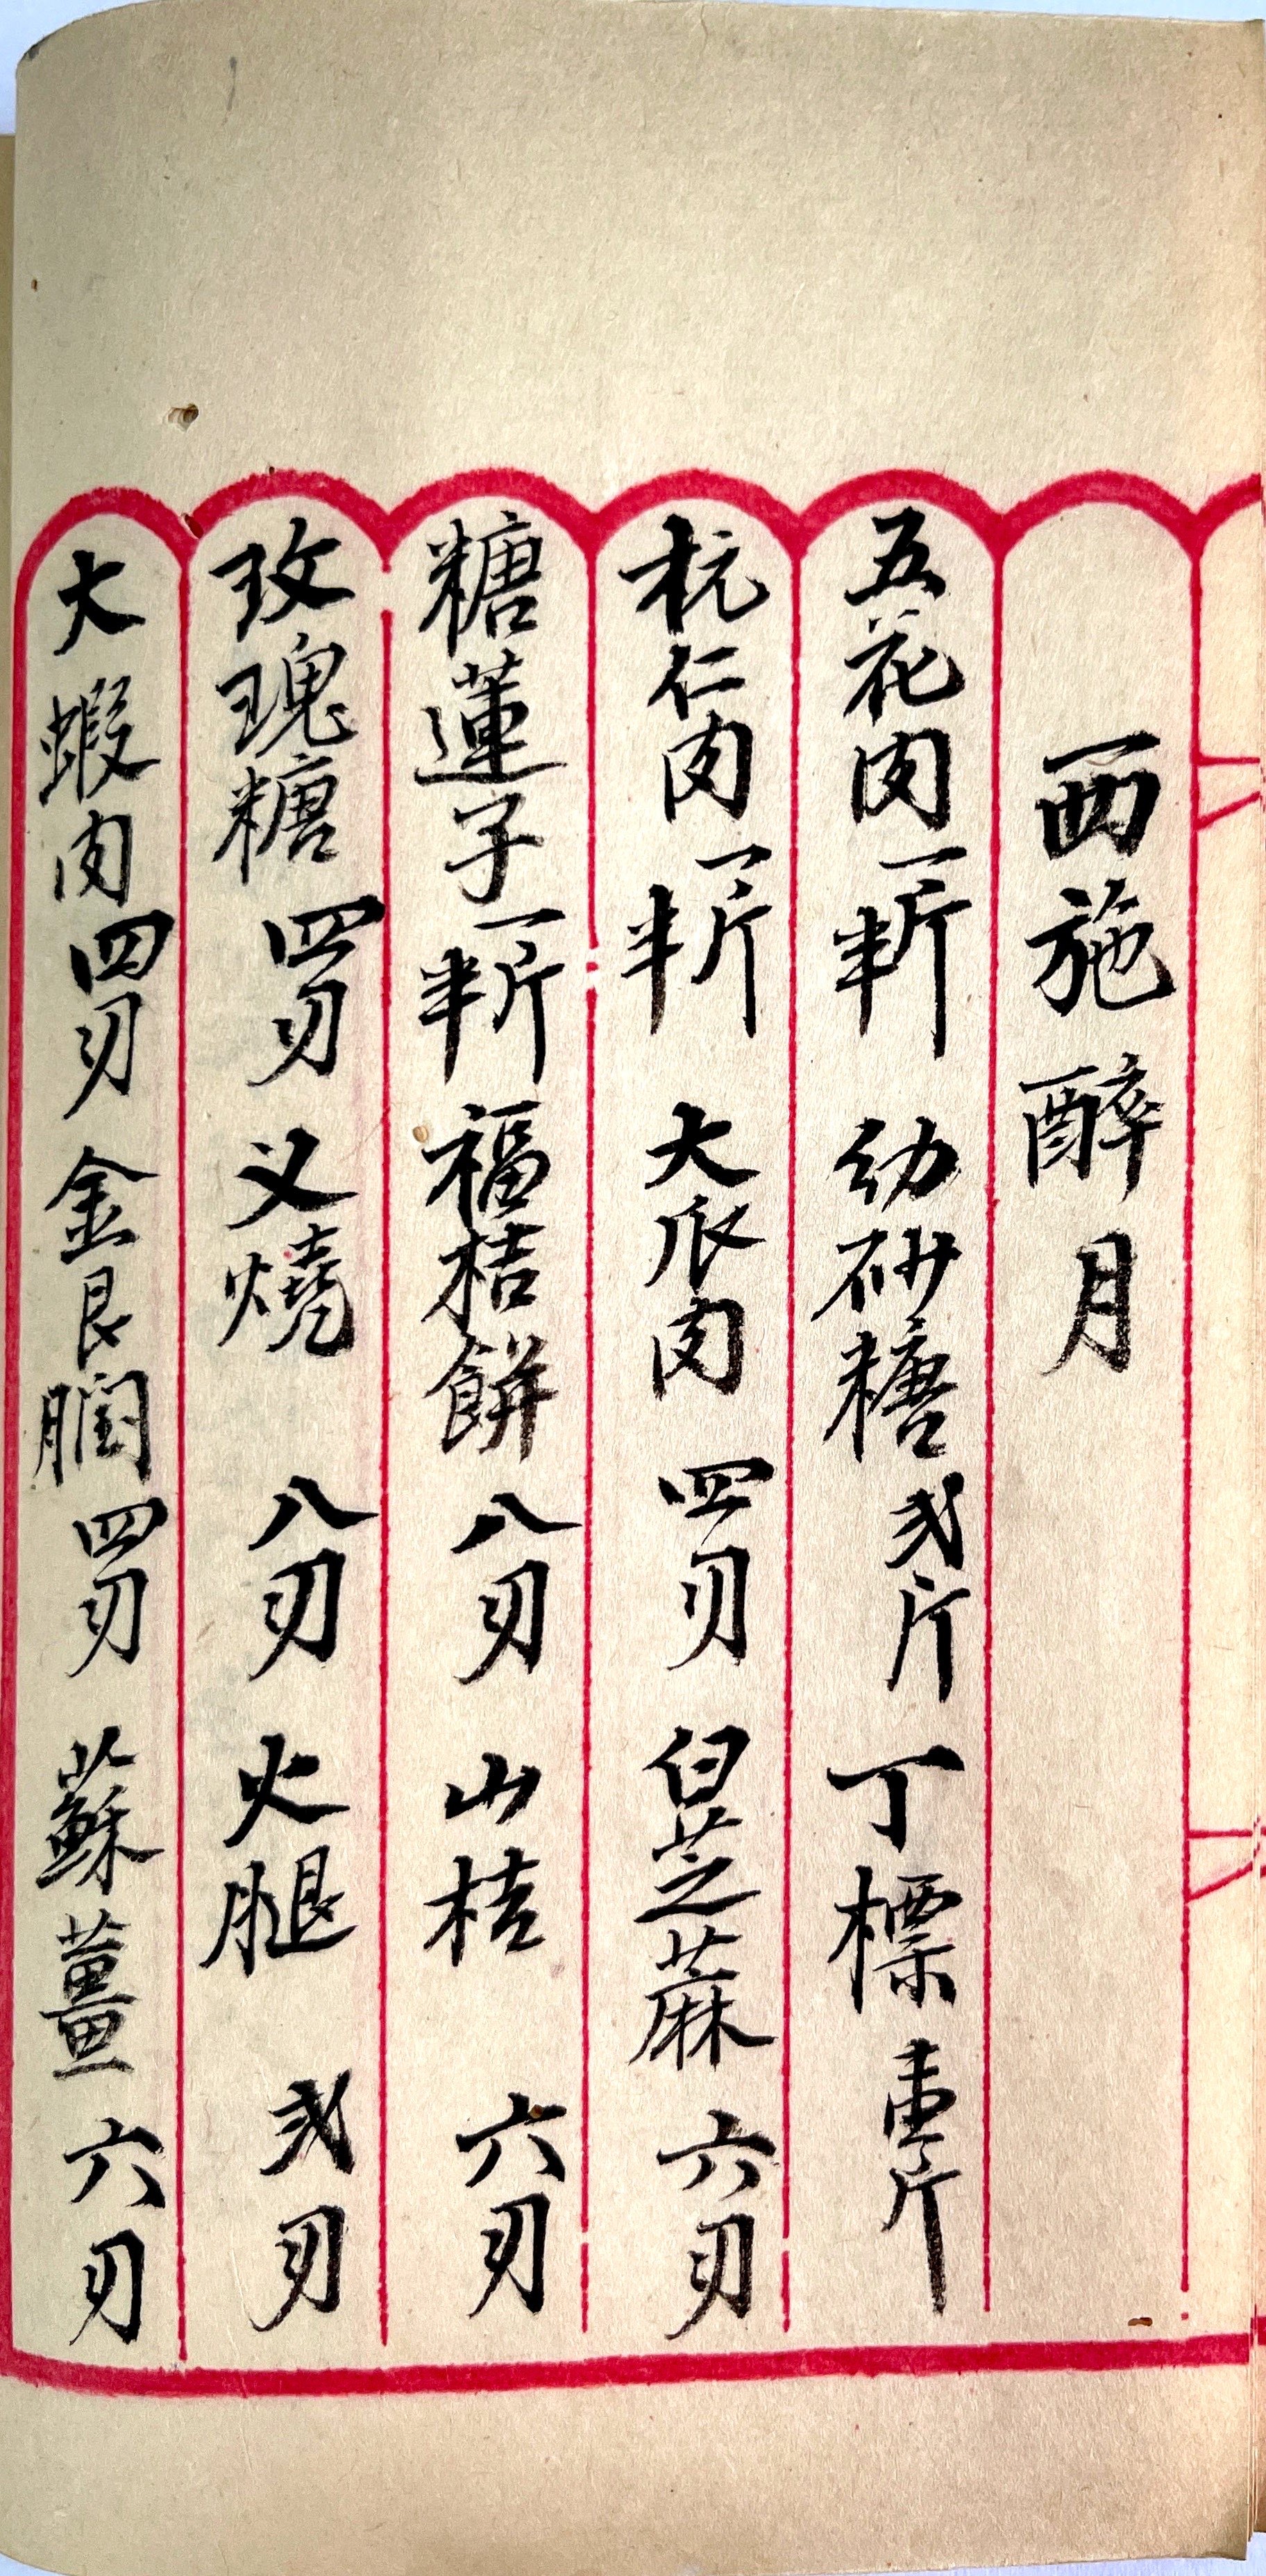 西施醉月
五花肉一斤半 幼砂糖弍斤 丁標壹斤
杬仁肉一斤半 大瓜肉四刄 白芝蔴六刄
糖蓮子一斤半 福桔餅八刄 山桔六刄
玫瑰糖四刄 义燒八刄 火腿弍刄
大蝦肉四刄 金艮膶四刄 蘇薑六刄